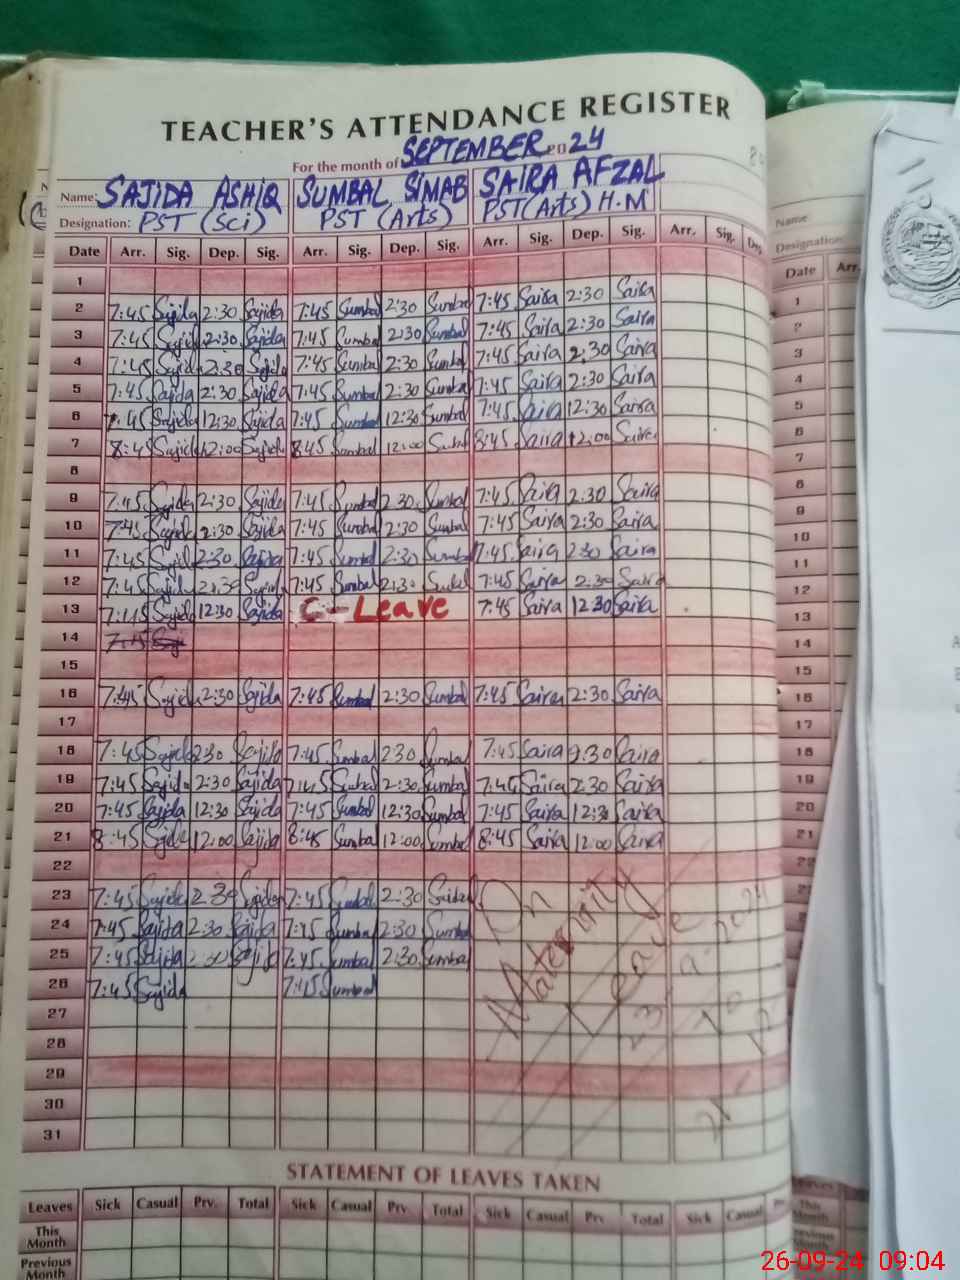 TEACHER'S ATTENDANCE REGISTER
For the month of SEPTEMBER 2024
Name: SAJIDA ASHIQ SUMBAL SIMAB SAIRA AFZAL
Designation: PST (Sci) PST (Arts) PST (Arts) H.M
Date Arr. Sig. Dep. Sig. Arr. Sig. Dep. Sig. Arr. Sig. Dep. Sig. Arr. Sig.
1
2 7:45 Sajida 2:30 Sajida 7:45 Sumbal 2:30 Sumbal 7:45 Saira 2:30 Saira
3 7:45 Sajida 2:30 Sajida 7:45 Sumbal 2:30 Sumbal 7:45 Saira 2:30 Saira
4 7:45 Sajida 2:30 Sajida 7:45 Sumbal 2:30 Sumbal 7:45 Saira 2:30 Saira
5 7:45 Sajida 2:30 Sajida 7:45 Sumbal 2:30 Sumbal 7:45 Saira 2:30 Saira
6 7:45 Sajida 12:30 Sajida 7:45 Sumbal 12:30 Sumbal 7:45 Saira 12:30 Saira
7 8:45 Sajida 12:00 Sajida 8:45 Sumbal 12:00 Sumbal 8:45 Saira 12:00 Saira
8
9 7:45 Sajida 2:30 Sajida 7:45 Sumbal 2:30 Sumbal 7:45 Saira 2:30 Saira
10 7:45 Sajida 2:30 Sajida 7:45 Sumbal 2:30 Sumbal 7:45 Saira 2:30 Saira
11 7:45 Sajida 2:30 Sajida 7:45 Sumbal 2:30 Sumbal 7:45 Saira 2:30 Saira
12 7:45 Sajida 2:30 Sajida 7:45 Sumbal 2:30 Sumbal 7:45 Saira 2:30 Saira
13 7:45 Sajida 12:30 Sajida C-Leave 7:45 Saira 12:30 Saira
14
15
16 7:45 Sajida 2:30 Sajida 7:45 Sumbal 2:30 Sumbal 7:45 Saira 2:30 Saira
17
18 7:45 Sajida 2:30 Sajida 7:45 Sumbal 2:30 Sumbal 7:45 Saira 2:30 Saira
19 7:45 Sajida 2:30 Sajida 7:45 Sumbal 2:30 Sumbal 7:45 Saira 2:30 Saira
20 7:45 Sajida 12:30 Sajida 7:45 Sumbal 12:30 Sumbal 7:45 Saira 12:30 Saira
21 8:45 Sajida 12:00 Sajida 8:45 Sumbal 12:00 Sumbal 8:45 Saira 12:00 Saira
22
23 7:45 Sajida 2:30 Sajida 7:45 Sumbal 2:30 Sumbal
24 7:45 Sajida 2:30 Sajida 7:45 Sumbal 2:30 Sumbal
25 7:45 Sajida 2:30 Sajida 7:45 Sumbal 2:30 Sumbal
26 7:45 Sajida 7:45 Sumbal
27
28
29
30
31
On
Maternity
Leave
STATEMENT OF LEAVES TAKEN
Leaves Sick Casual Prv. Total Sick Casual Prv. Total Sick Casual Prv. Total Sick Casual
This Month
Previous Month
Name
Designation:
Date Arr.
1
2
3
4
5
6
7
8
9
10
11
12
13
14
15
16
17
18
19
20
21
22
26-09-24 09:04